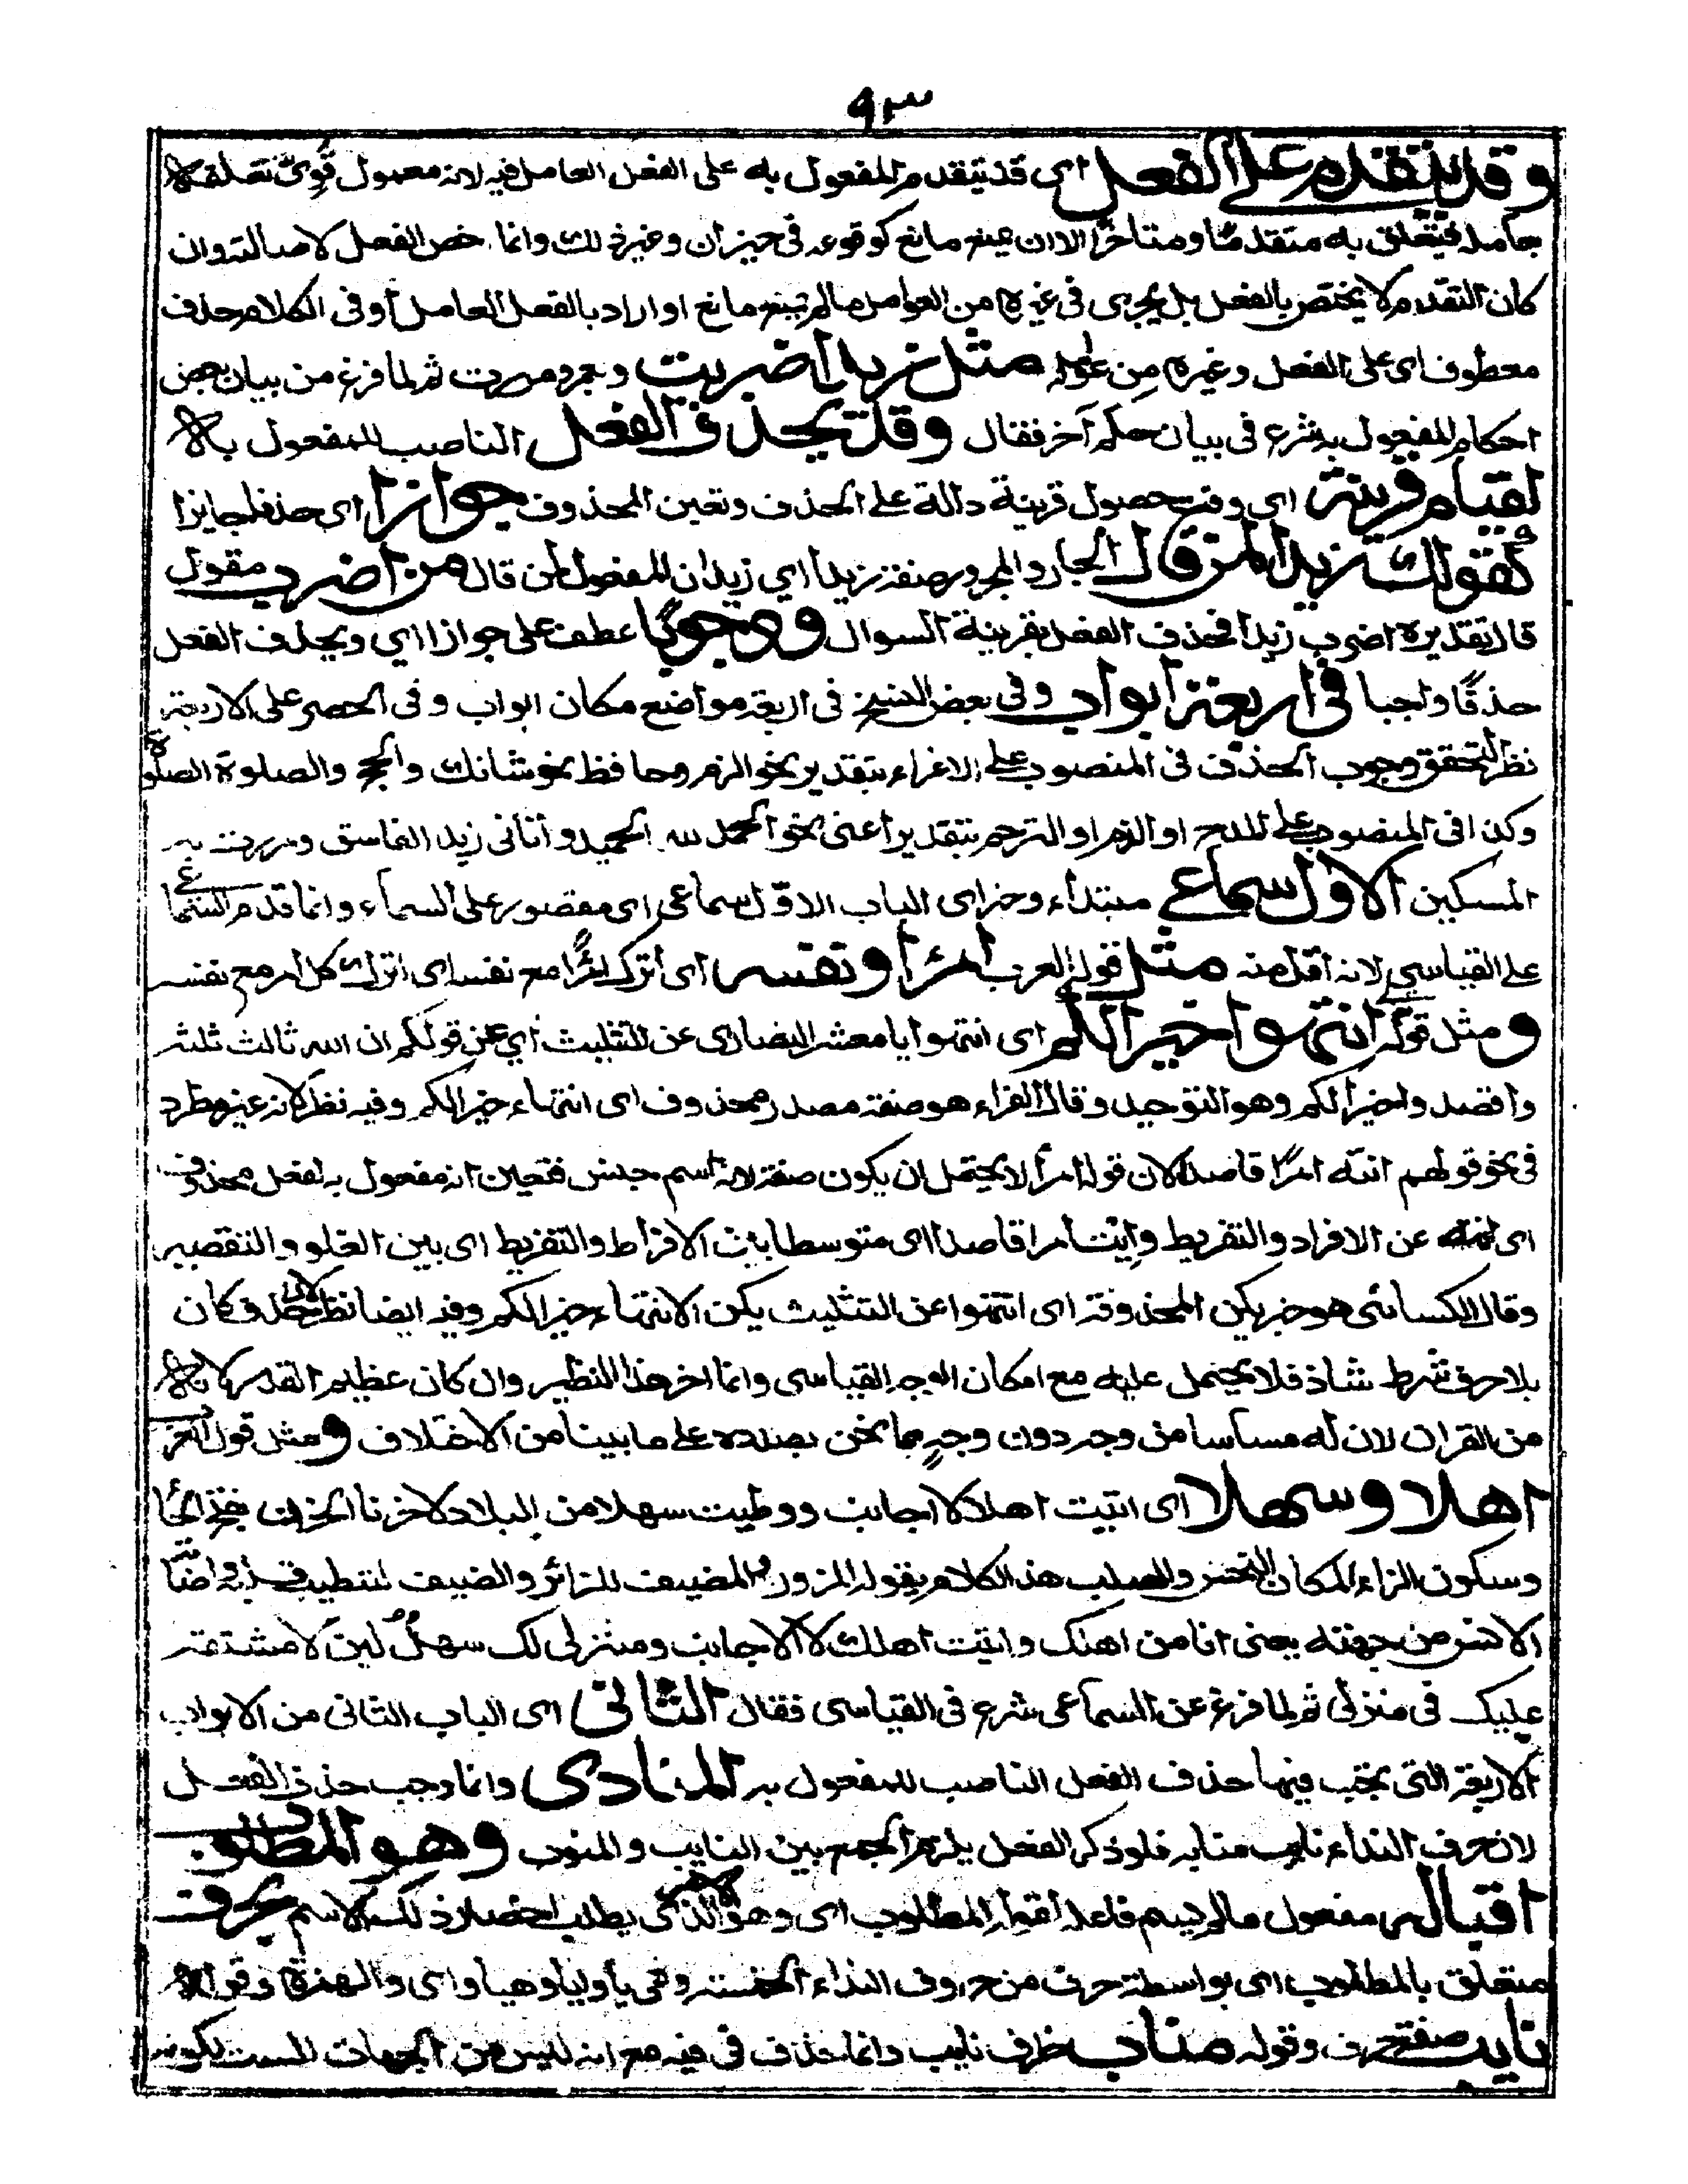 ٩٣
وقد يتقدم على الفعل اى قد يتقدم المفعول به على الفعل العامل فيه لانه معمول قوىّ تعلقه
بعامله فيتعلق به متقدمًا ومتاخرًا الا ان يمنع مانع كوقوعه فى حيز ان وغير ذلك وانما خص الفعل لاصالته وان
كان التقدم لا يختص بالفعل بل يجرى فى غيره من العوامل مالم يمنع مانع او اراد بالفعل العامل أو فى الكلام حذف
معطوف اى على الفعل وغيره من عوامله مثل زيدا ضربت وبعمرو مررت ثم لما فرغ من بيان بعض
احكام المفعول به شرع فى بيان حكم آخر فقال وقد يحذف الفعل الناصب للمفعول به
لقيام قرينة اى وقت حصول قرينة دالة على الحذف وتعين المحذوف جوازا اى حذفا جايزا
كقولك زيدا لمن قال الجار والمجرور صفة زيدا اى زيدان المفعول لمن قال من اضرب مقول
قال تقديره اضرب زيدا فحذف الفعل بقرينة السوال ووجوبًا عطف على جوازا اى ويحذف الفعل
حذفًا واجبا فى اربعة ابواب وفى بعض النسخ فى اربعة مواضع مكان ابواب وفى الحصر على الاربعة
نظر لتحقق وجوب الحذف فى المنصوب على الاغراء بتقدير نحو الزم وحافظ نحو شانك والحج والصلوة الصلوة
وكذا فى المنصوب على المدح او الذم او الترحم بتقدير اعنى نحو الحمد لله الحميد وأتانى زيد الفاسق ومررت به
المسكين الاول سماعى مبتداء وخبر اى الباب الاوّل سماعى اى مقصور على السماء وانما قدم السماعى
على القياسى لانه اقل منه مثل قول العرب امرًا ونفسه اى اترك امرًا مع نفسه اى اترك كل امر مع نفسه
ومثل قوله انتهوا خيرا لكم اى انتهوا يا معشر النصارى عن التثليث أي عن قولكم ان الله ثالث ثلثة
واقصدوا خيرا لكم وهو التوحيد وقال الفراء هو صفة مصدر محذوف اى انتهاء خيرا لكم وفيه نظر لانه غير مطرد
فى نحو قولهم انته امرًا قاصدا لان قوله امرأ لا يحتمل ان يكون صفة لانه اسم جنس فتعين انه مفعول به لفعل محذوف
اى انته عن الافراد والتفريط وايت امرا قاصدا اى متوسطا بين الافراط والتفريط اى بين الغلو والتقصير
وقال الكسائى هو خبر يكن المحذوفة اى انتهوا عن التثليث يكن الانتهاء خيرا لكم وفيه ايضا نظر لان حذف كان
بلا حرف شرط شاذ فلا يحتمل عليه مع امكان الوجه القياسى وانما اخر هذا النظير وان كان عظيم القدر لانه
من القرآن لان له مساسا من وجه دون وجهٍ بما نحن بصدده على ما بينا من الاختلاف ومثل قول العرب
اهلا وسهلا اى اتيت اهلا لا اجانب ووطيت سهلا من البلاد لا حزنا الحزن بفتح الحاء
وسكون الزاء المكان الخشن والصلب هذا الكلام يقوله المزور والمضيف للزائر والضيف لتطييب قلبه واضافة
الانس من جهته يعنى انا من اهلك واتيت اهلك لا الاجانب ومنزلى لك سهلٌ لينٌ لا مشتقة
عليك فى منزلى ثم لما فرغ عن السماعى شرع فى القياسى فقال الثانى اى الباب الثانى من الابواب
الاربعة التى يجب فيها حذف الفعل الناصب للمفعول به المنادى وانما وجب حذف الفعل
لان حرف النداء نايب منابه فلو ذكر الفعل يلزم الجمع بين النايب والمنوب وهو المطلوب
اقباله مفعول مالم يسم فاعله اقيم المطلوب اى وهو الذى يطلب احضار ذلك الاسم بحرف
متعلق بالمطلوب اى بواسطة حرف من حروف النداء الخمسة وهى يا وايا وهيا واى والهمزة وقوله
نايب صفة حرف وقوله مناب ظرف نايب وانما حذف فى فيه مع انه ليس من الجهات الست لكونه